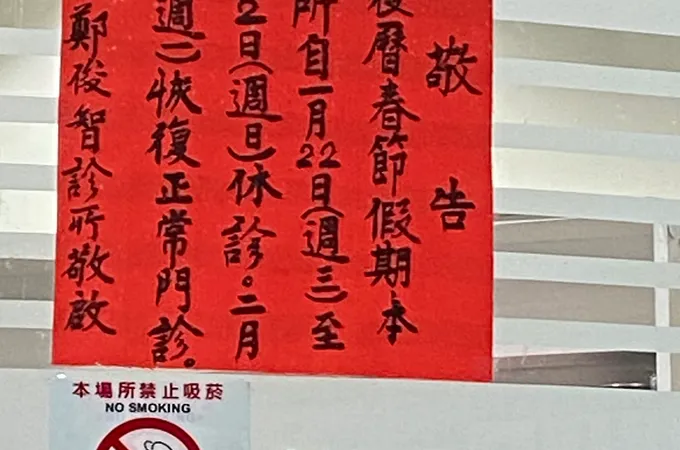 敬告
曆春節假期本
所自一月22日(週三)至
2日(週日)休診。二月
週一)恢復正常門診。
鄭俊智診所敬啟
本場所禁止吸菸
NO SMOKING